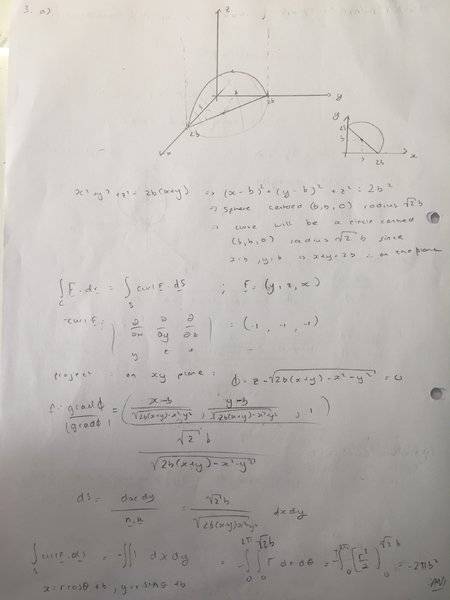 3. a)
z
y
2b
2b
x
y
2b
b
2b
x
x² + y² + z² = 2b(x+y) ⇒ (x-b)² + (y-b)² + z² = 2b²
⇒ Sphere centred (b,b,0) radius √2 b
⇒ curve will be a circle centred
(b,b,0) radius √2 b since
x=b, y=b ⇒ x+y=2b ∴ on the plane
∫_C F.dr = ∫_S curl F.dS ; F = (y, z, x)
curl F = | ∂/∂x ∂/∂y ∂/∂z | = (-1, -1, -1)
y z x
project on xy plane: φ = z - √2b(x+y)-x²-y² = 0
n = grad φ / |grad φ| = ( x-b / √2b(x+y)-x²-y² , y-b / √2b(x+y)-x²-y² , 1 )
√2 b
√2b(x+y)-x²-y²
dS = dxdy / n.k = √2 b / √2b(x+y)-x²-y² dxdy
∫_S curl F.dS = -∬ 1 dxdy = -∫_0^{2π} ∫_0^{√2 b} r dr dθ = -∫_0^{2π} [r²/2]_0^{√2 b} = -2πb²
x = r cosθ + b, y = r sinθ + b